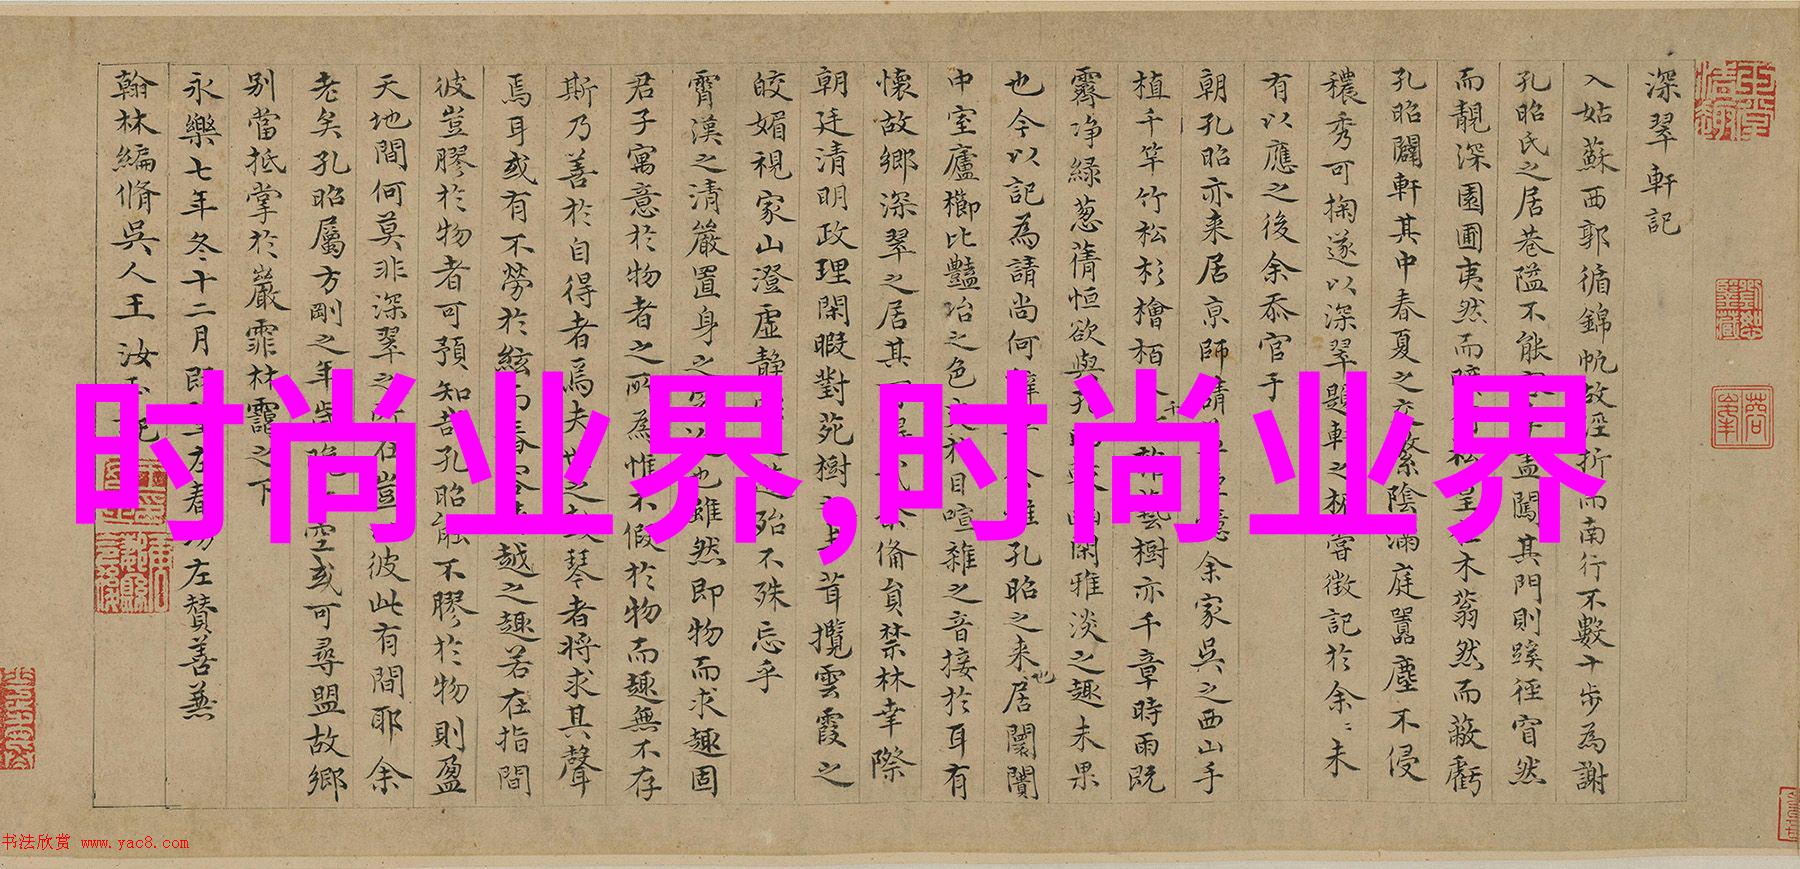 深翠軒記
入姑蘇西郭循錦帆故涇折而南行不數十步為謝
孔昭氏之居巷隘不能
盖闖其門則蹊徑窅然
而靚深園圃夷然而
木蓊然而蔽虧
孔昭闢軒其中春夏之交繁陰滿庭囂塵不侵
穠秀可掬遂以深翠題軒之
嘗徵記於余〻未
有以應之後余忝官于
朝孔昭亦来居京師請
余家吳之西山手
植千竿竹松杉檜栢
藝樹亦千章時雨既
霽净緑葱蒨恒欲與孔
幽閑雅淡之趣未果
也今以記為請尚何
孔昭之来居闤闠
中室廬櫛比豔冶之色
於目喧雜之音接於耳有
懷故鄉深翠之居其
備員禁林幸際
朝廷清明政理閑暇對苑樹
攬雲霞之
皎媚視家山澄虚静
殆不殊忘乎
霄漢之清嚴置身之
也雖然即物而求趣固
君子寓意於物者之所為惟不假於物而趣無不存
斯乃善於自得者焉夫
琴者将求其聲
焉耳或有不勞於絃而
越之趣若在指間
彼豈膠於物者可預知哉孔昭能不膠於物則盈
天地間何莫非深翠之
在豈
彼此有間耶余
老矣孔昭屬方剛之年
或可尋盟故鄉
别當抵掌於巖霏林靄之下
永樂七年冬十二月
左春坊左贊善兼
翰林編脩吳人王汝玉
时尚业界,时尚业界
书法欣赏 www.yac8.com